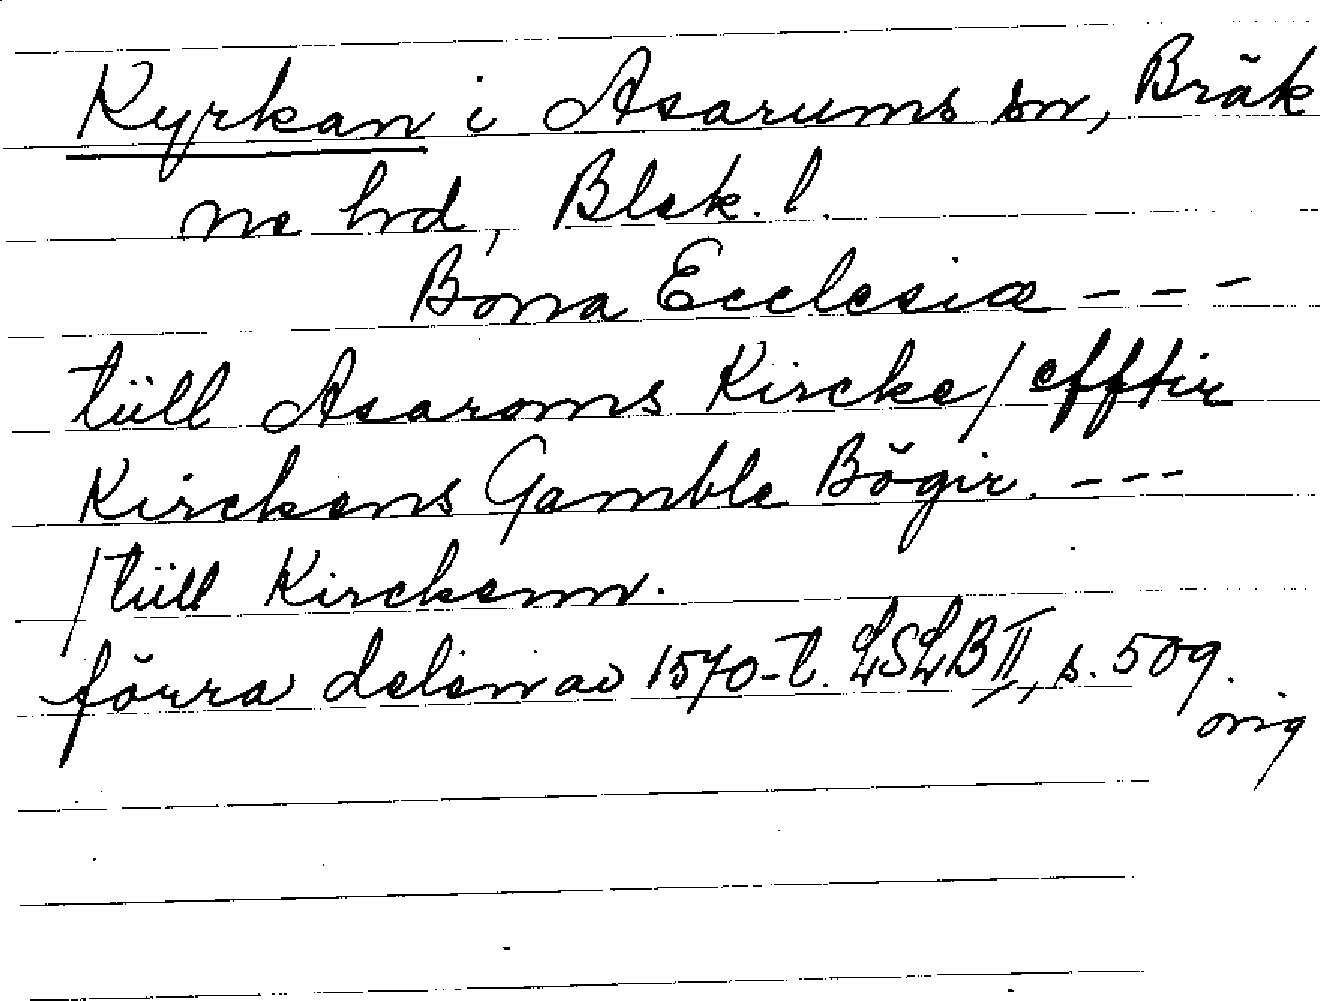 Kyrkan i Asarums sn, Bräk
ne hd, Blek. l.
Bona Ecclesiæ - - -
tüll Asaroms Kircke / efftir
Kirckens Gamble Bögir. - - -
/ tüll Kirckenn.
förra delen av 1570-t. LSLB II, s. 509.
orig